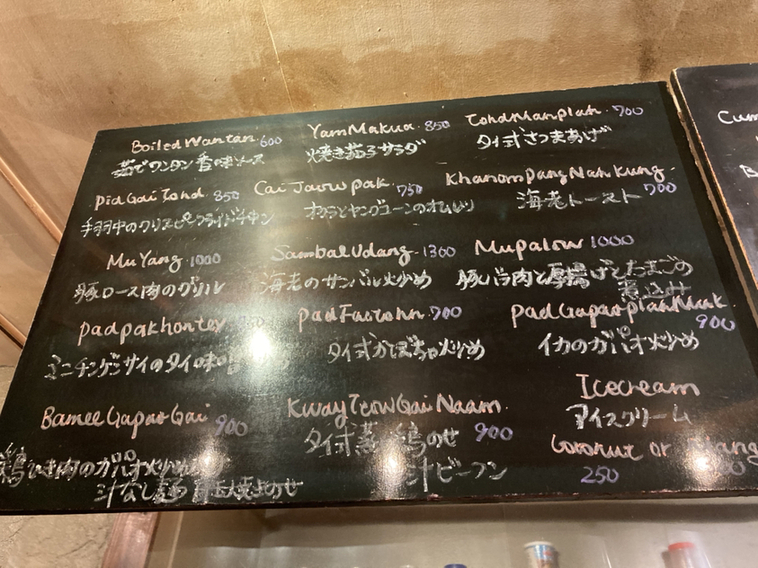 Boiled Wantan 600
茹でワンタン 香味ソース
Yam Makua 850
焼き茄子サラダ
Tohd Man plah 700
タイ式さつまあげ
Pid Gai Tohd 850
手羽中のクリスピーフライドチキン
Cai Jaow pak 750
オクラとヤングコーンのオムレツ
Khanom pang Nah Kung
海老トースト 700
Mu Yang 1000
豚ロース肉のグリル
Sambal Udang 1300
海老のサンバル炒め
Mupalow 1000
豚バラ肉と厚揚げとたまごの
煮込み
pad pak hontey
ミニチンゲンサイのタイ味噌
pad Fartohn 700
タイ式かぼちゃ炒め
pad Gapao plah Muk
900
イカのガパオ炒め
Bamee Gapao Gai 900
鶏ひき肉のガパオ炒め
汁なし麺 目玉焼きのせ
Kway Teow Gai Naam
タイ式蒸し鶏のせ 900
汁ビーフン
Icecream
アイスクリーム
Coconut or
250
Cum
B